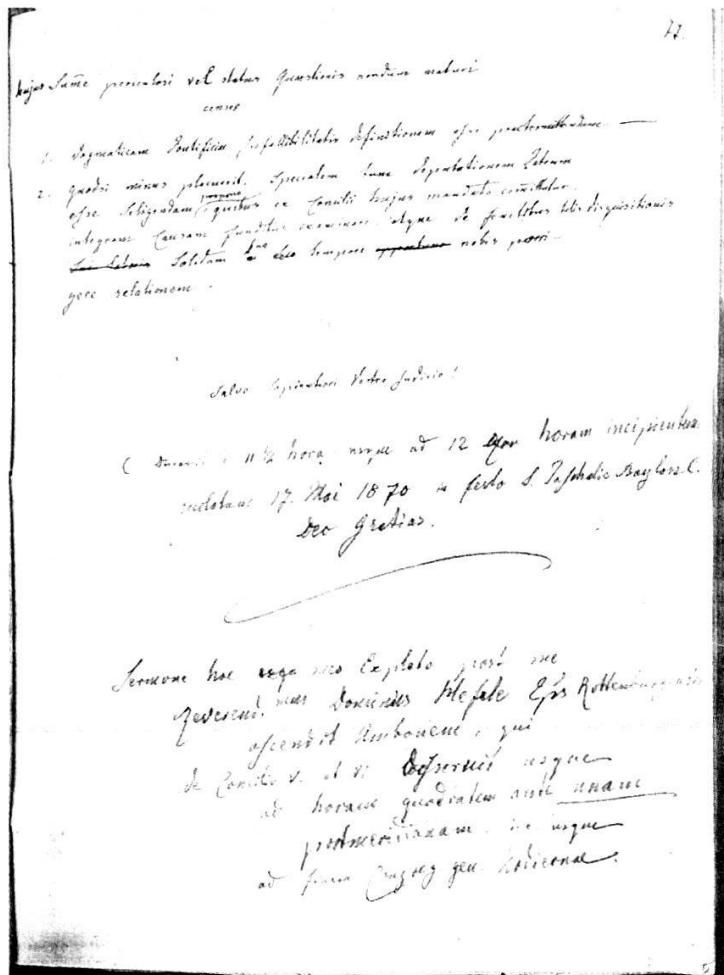 77.
hujus Summe periculosi vel status Questionis nondum maturi
censeo
1. Dogmaticam Pontificiae Infallibilitatis definitionem esse praetermittendam.
2. quodsi minus placuerit, Specialem tunc Deputationem Patrum
esse Seligendam, quibus ex Concilii hujus mandato committatur
integram Causam funditus examinare, atque de fructibus disquisitionis
Solidam suo tempore nobis
gere relationem.
Salvo Sapientiori Vestro Judicio!
( 11 1/2 hora usque ad 12 horam incipientem
17. Mai 1870 in festo S. Paschalis Baylon C.
Deo Gratias.
Sermone hoc meo Expleto post me
Reverend.mus Dominus Hefele Eps Rottenburgensis
ascendit Ambonem, qui
de Concilio V. et VI disseruit usque
ad horam quadratem ante unam
postmeridianam. usque
ad finem Congreg gen. hodiernae.